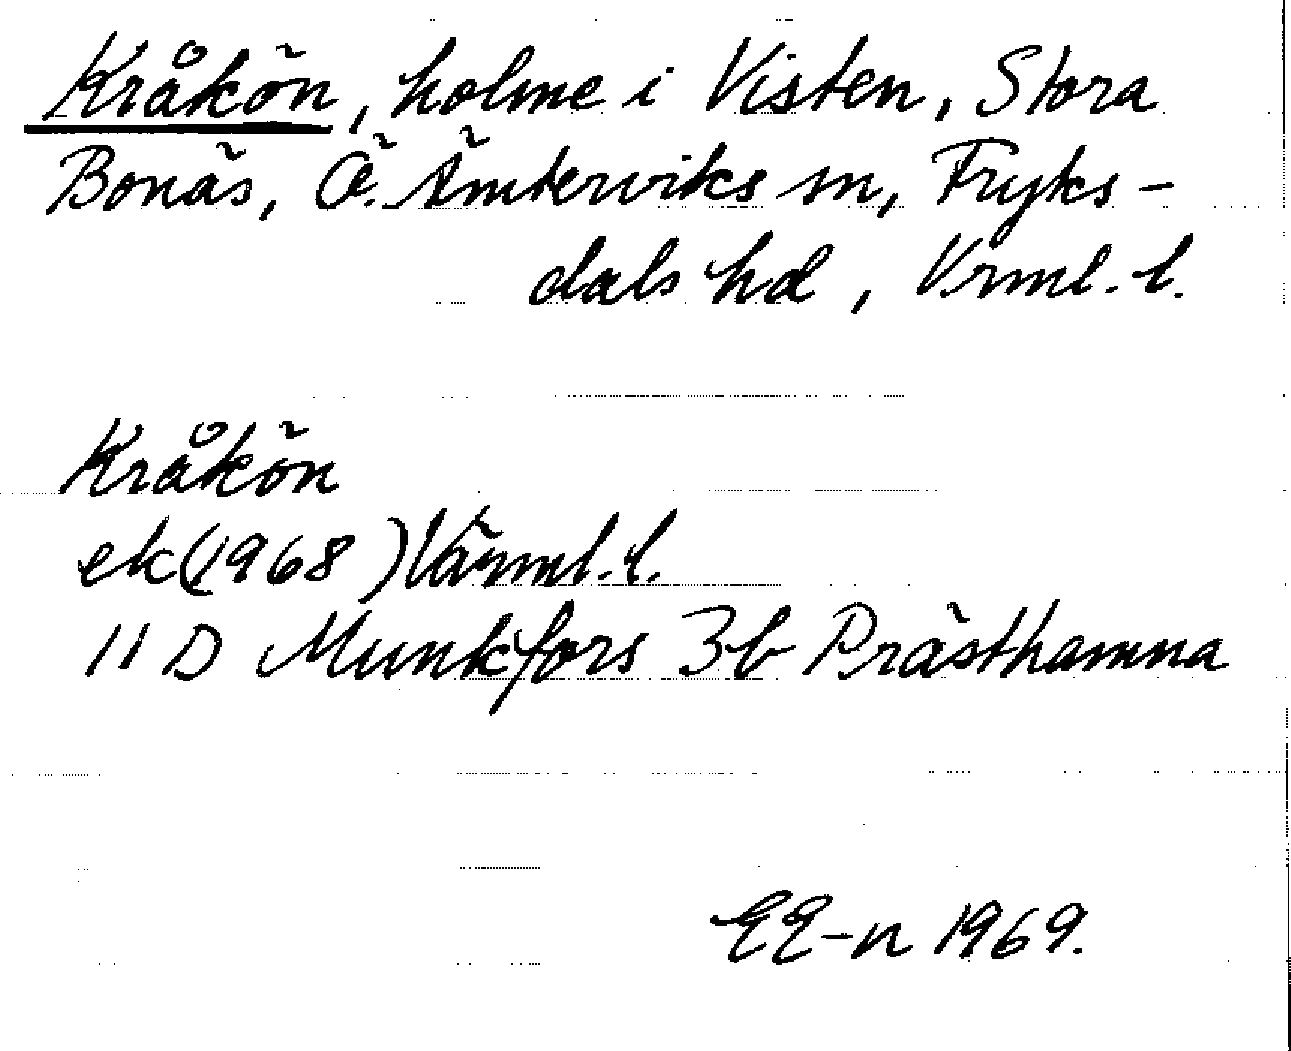 Kråkön, holme i Visten, Stora
Bonäs, Ö. Ämterviks sn, Fryks-
dals hd, Vrml. l.
Kråkön
ek(1968) Värml. l.
11 D Munkfors 3b Prästhamna
EE-n 1969.